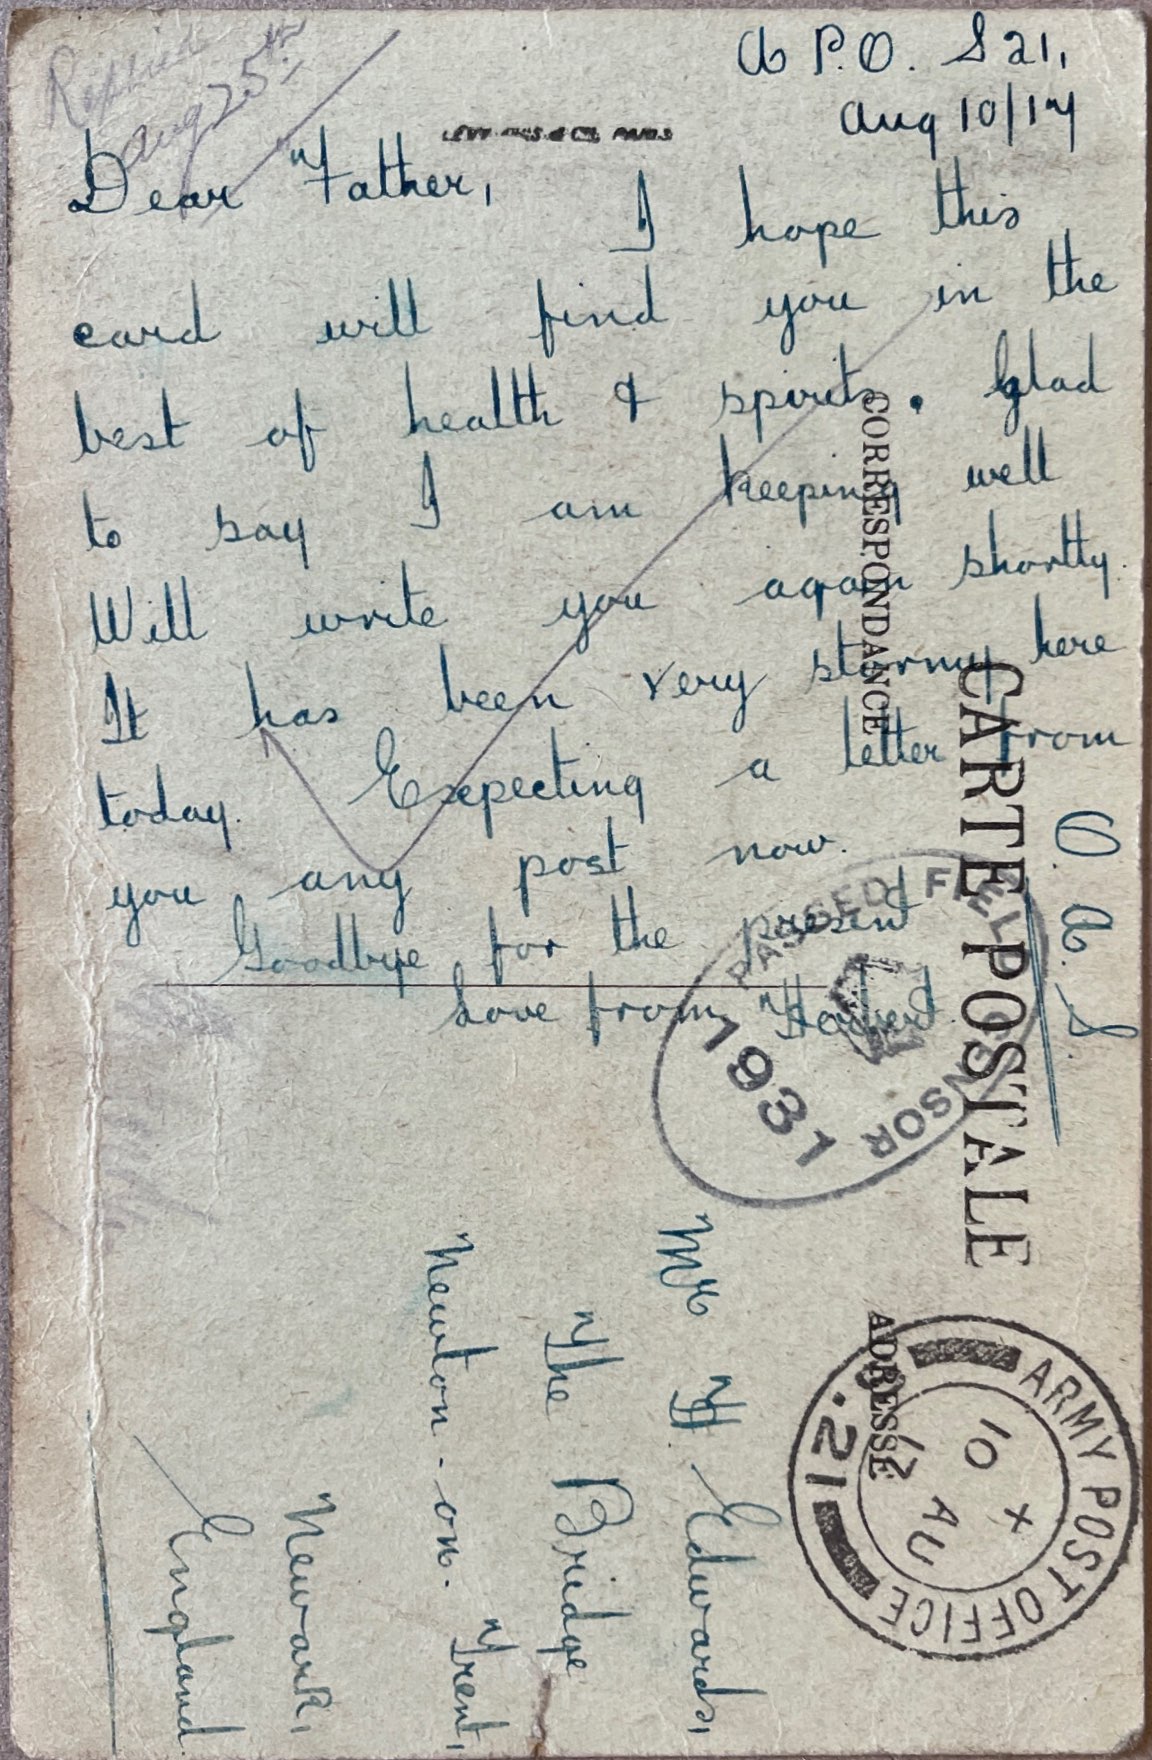 Replied
Aug 25th
A P.O. S 21,
Aug 10/17
LEVY FILS & CIE, PARIS
Dear Father,
I hope this
card will find you in the
best of health & spirits. Glad
to say I am keeping well
Will write you again shortly.
It has been very stormy here
today. Expecting a letter from
you any post now.
Goodbye for the present
Love from Herbert.
O. A. S.
CARTE POSTALE
CORRESPONDANCE
ADRESSE
PASSED FIELD CENSOR
1931
ARMY POST OFFICE
10
X
AU
17
.21
Mr H Edwards,
The Bridge
Newton-on-Trent,
Newark,
England